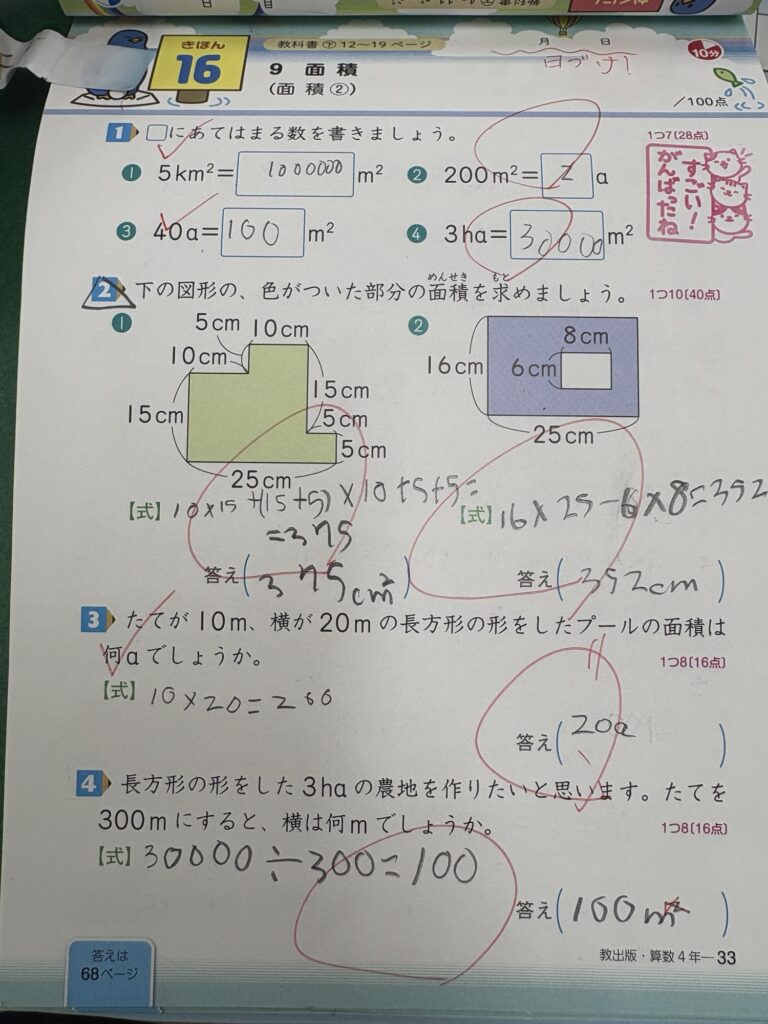 教科書㊦12〜19ページ
きほん
16
9 面積
(面積②)
月 日
日づけ!
10分
/100点
1 □にあてはまる数を書きましょう。
1つ7〔28点〕
❶ 5km²=1000000m² ❷ 200m²=2a
❸ 40a=100m² ❹ 3ha=30000m²
すごい!
がんばったね
2 下の図形の、色がついた部分の面積を求めましょう。
めんせき もと
1つ10〔40点〕
❶ 5cm 10cm
10cm
15cm
15cm
5cm
5cm
25cm
❷ 8cm
16cm 6cm
25cm
【式】10×15+(15+5)×10+5+5=
=375
答え(375cm²)
【式】16×25-6×8=352
答え(352cm)
3 たてが10m、横が20mの長方形の形をしたプールの面積は
何aでしょうか。
1つ8〔16点〕
【式】10×20=200
答え(20a)
4 長方形の形をした3haの農地を作りたいと思います。たてを
300mにすると、横は何mでしょうか。
1つ8〔16点〕
【式】30000÷300=100
答え(100m²)
答えは
68ページ
教出版・算数4年—33